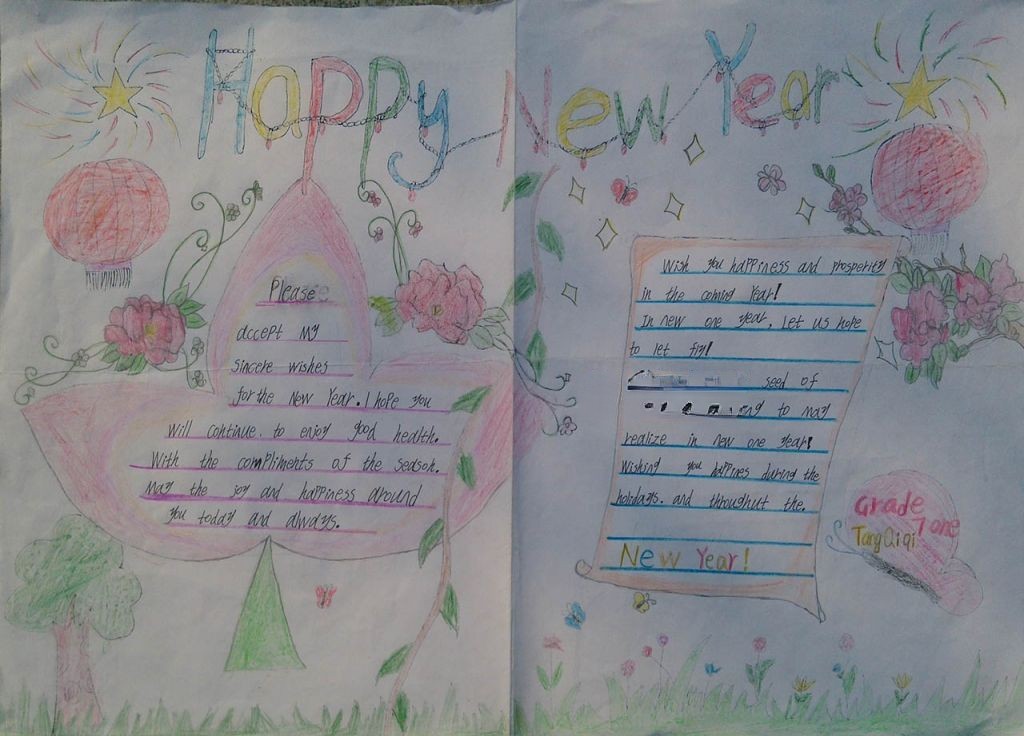 Happy New Year
Please
accept my
sincere wishes
for the New Year. I hope you
will continue. to enjoy good health.
With the compliments of the season.
May the joy and happiness around
you today and always.
Wish you happiness and prosperity
in the coming Year!
In new one year, Let us hope
to let fly!
seed of
to may
realize in new one year!
Wishing you happines during the
holidays. and throughut the.
New Year!
Grade
7 one
Tang Qi qi